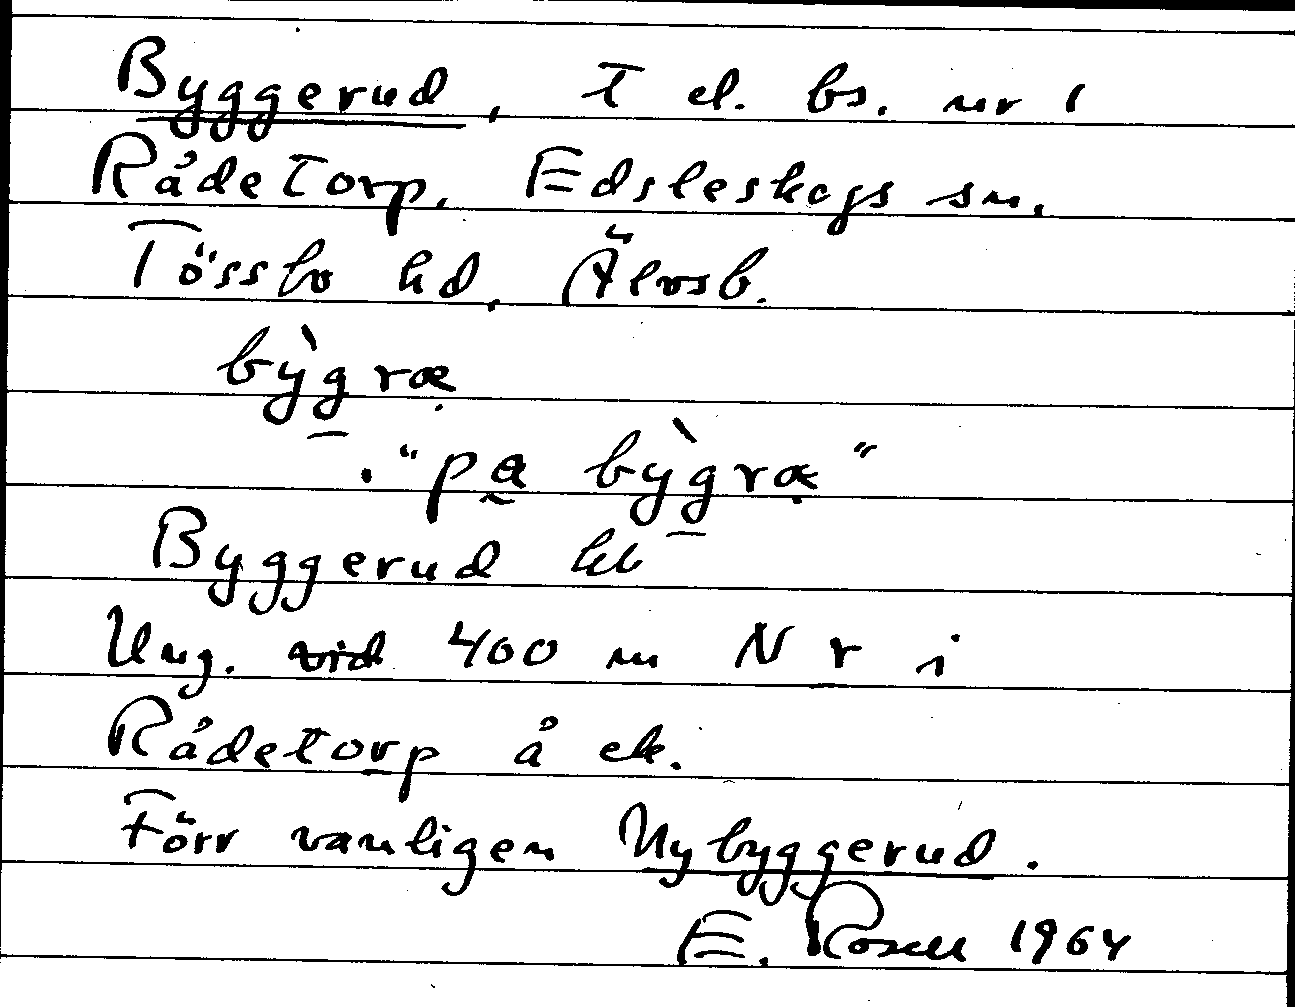 Byggerud, T el. bs. nr 1
Rådetorp, Edsleskogs sn.
Tössbo hd, Älvsb.
bỳgræ
. "pa bỳgræ"
Byggerud kb
Ung. vid 400 m N r i
Rådetorp å ek.
Förr vanligen Nybyggerud.
E. Rosell 1964